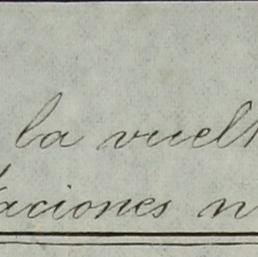 la vuelt
taciones n